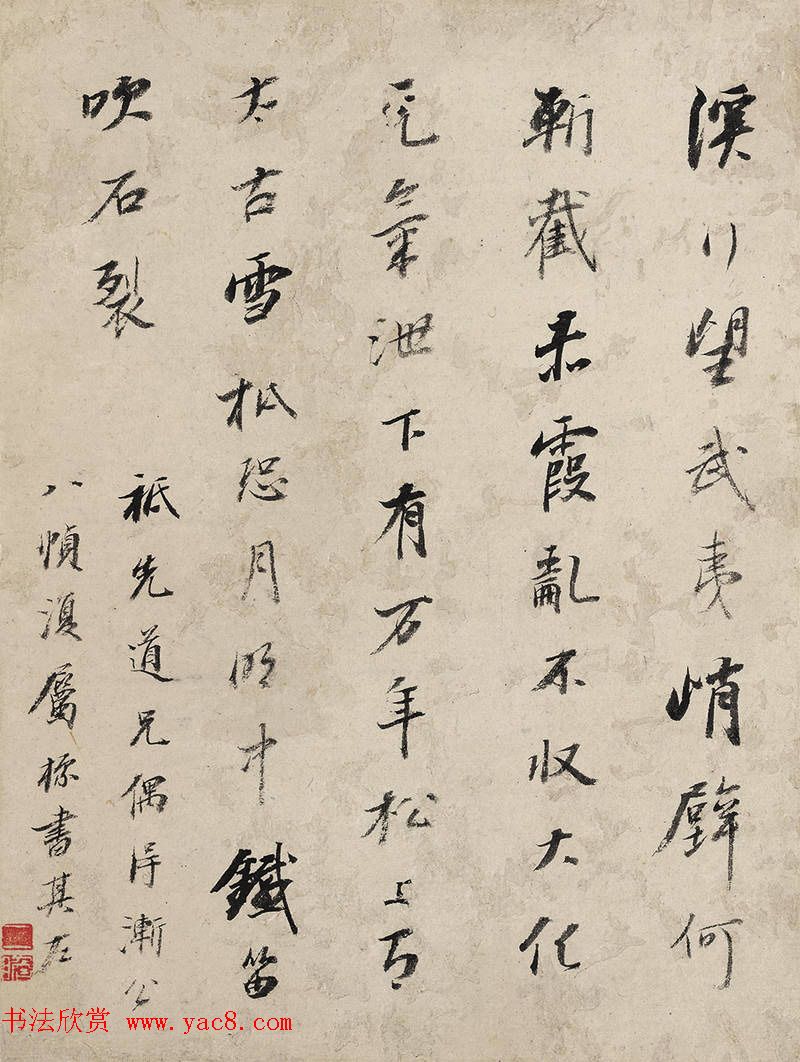 溪行望武夷峭壁何
斬截赤霞亂不收大化
元氣泄下有万年松上有
太古雪秪恐月明中鐵笛
吹石裂
秪先道兄偶得漸公
八幀須屬標書其左
书法欣赏 www.yac8.com